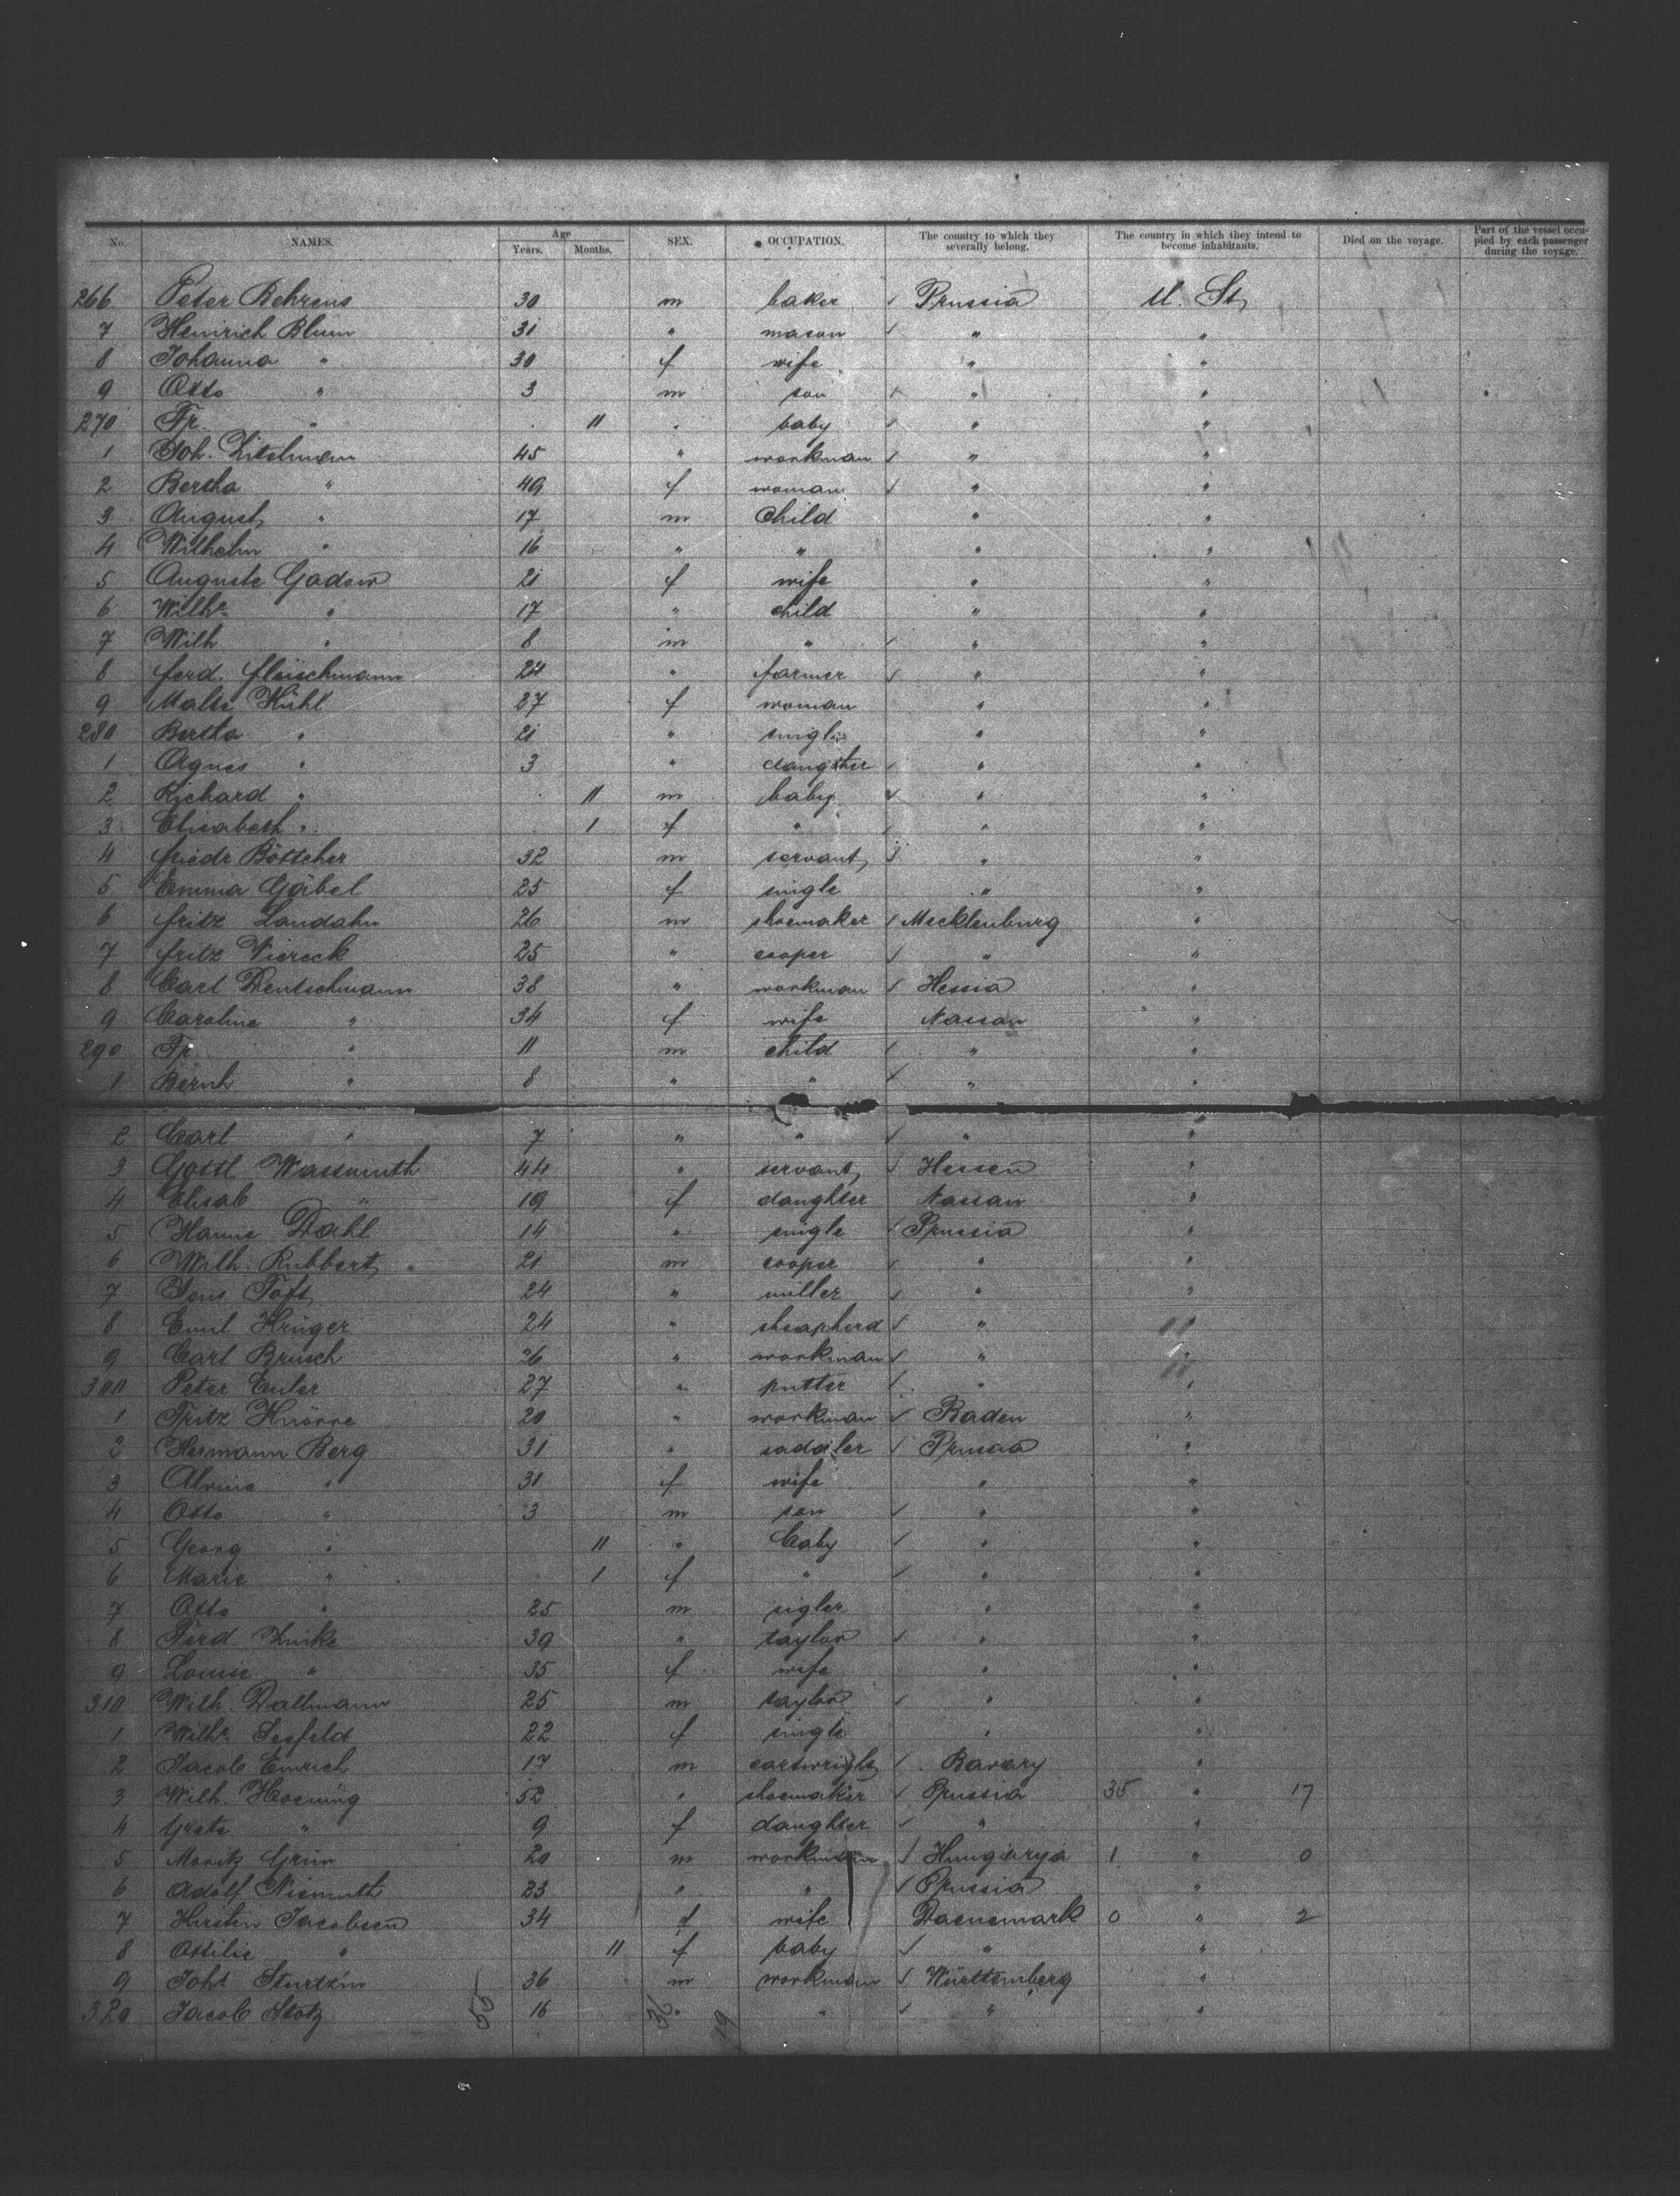 No. NAMES. Age Years. Months. SEX. OCCUPATION. The country to which they severally belong. The country in which they intend to become inhabitants. Died on the voyage. Part of the vessel occupied by each passenger during the voyage.
266 Peter Behrens 30 m baker Prussia U. St.
7 Heinrich Blum 31 " mason " "
8 Johanna " 30 f wife " "
9 Otto " 3 m son " "
270 Fr. " 11 " baby " "
1 Joh. 45 " workman " "
2 Bertha " 49 f woman " "
3 August " 17 m child " "
4 Wilhelm " 16 " " " "
5 Auguste Gadow 21 f wife " "
6 Wilhe " 17 " child " "
7 Wilh " 8 m " " "
8 Ferd. Fleischmann 24 " farmer " "
9 Malte Kühl 27 f woman " "
280 Bertha " 21 " single " "
1 Agnes " 3 " daugther " "
2 Richard " 11 m baby " "
3 Elisabeth " 1 f " " "
4 Friedr Böttcher 32 m servant " "
5 Emma Gäbel 25 f single " "
6 Fritz Landahn 26 m shoemaker Mecklenburg "
7 Fritz Viereck 25 " cooper " "
8 Carl Dentschmann 38 " workman Hessia "
9 Caroline " 34 f wife Nassau "
290 Fr. " 11 m child " "
1 Bernh " 8 " " " "
2 Carl " 7 " " " "
3 Gottl Wassmuth 44 " servant Hessen "
4 Elisab " 19 f daughter Nassau "
5 Hanne Dahl 14 " single Prussia "
6 Wilh. Rubbert 21 m cooper " "
7 Jens Toft 24 " miller " "
8 Emil Krüger 24 " sheapherd " "
9 Carl Brusch 26 " workman " "
300 Peter Euler 27 " putter " "
1 Fritz Knörre 20 " workman Baden "
2 Hermann Berg 31 " saddler Prussia "
3 Alvine " 31 f wife " "
4 Otto " 3 m son " "
5 Georg " 11 " baby " "
6 Marie " 1 f " " "
7 Otto " 25 m sigler " "
8 Ferd Zinke 39 " taylor " "
9 Louise " 35 f wife " "
310 Wilh. Dallmann 25 m taylor " "
1 Wilhe Seefeld 22 f single " "
2 Jacob Emrich 17 m cartwright Bavary "
3 Wilh. Hoening 52 " shoemaker Prussia 35 " 17
4 Grete " 9 f daughter " "
5 Moritz Grün 20 m workman Hungarya 1 " 0
6 Adolf Niemuth 23 " " Prussia "
7 Kirstin Jacobsen 34 f wife Daenemark 0 " 2
8 Ottilie " 11 f baby " "
9 Joht 36 m workman Württemberg "
320 Jacob Stotz 16 " " " "
55 36 19